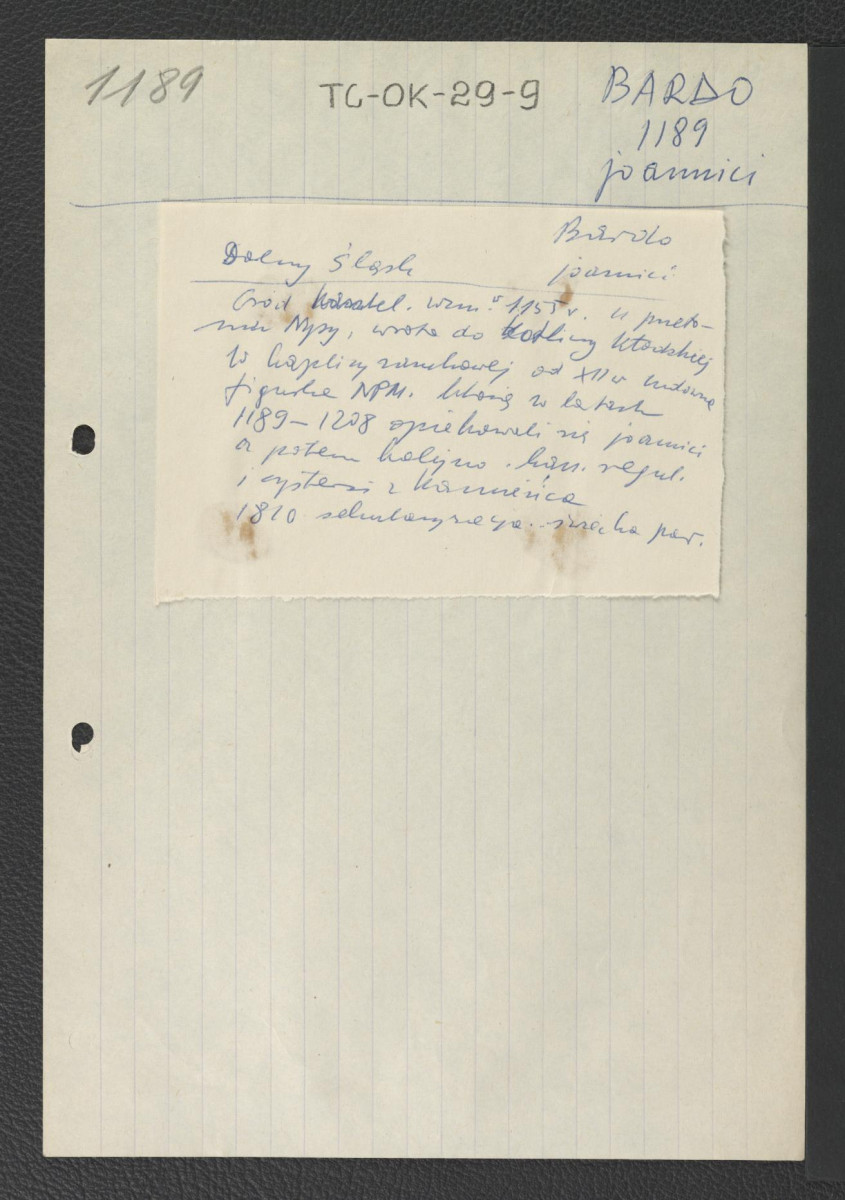 1189
TG-OK-29-9
BARDO
1189
joannici
Bardo
Dolny Śląsk
joannici
Gród kasztel. wzm. w 1155 r. u przeło-
mu Nysy, wrota do Kotliny Kłodzkiej
W kaplicy zamkowej od XII w cudowna
figurka NPM. którą w latach
1189-1208 opiekowali się joannici
a potem kolejno kan. regul.
i cystersi z Kamieńca
1810 sekularyzacja. par.